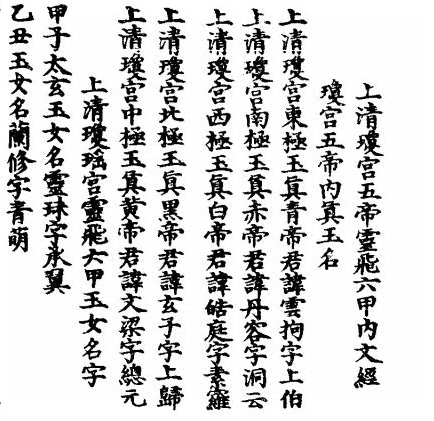 上清瓊宮五帝靈飛六甲內文經
瓊宮五帝內真玉名
上清瓊宮東極玉真青帝君諱雲拘字上伯
上清瓊宮南極玉真赤帝君諱丹容字洞云
上清瓊宮西極玉真白帝君諱皓庭字素羅
上清瓊宮北極玉真黑帝君諱玄子字上歸
上清瓊宮中極玉真黃帝君諱文梁字總元
上清瓊瑤宮靈飛六甲玉女名字
甲子太玄玉女名靈珠字承翼
乙丑玉女名蘭修字青萌